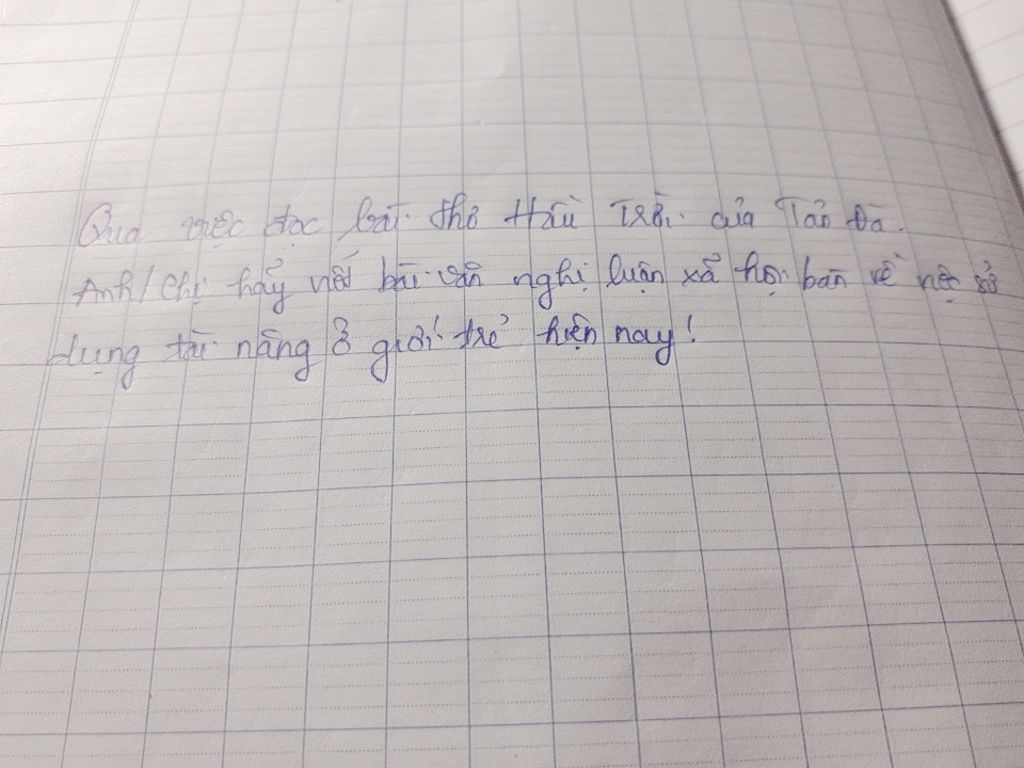 Qua việc đọc bài thơ Hầu Trời của Tản Đà.
Anh/Chị hãy viết bài văn nghị luận xã hội bàn về việc sử
dụng tài năng ở giới trẻ hiện nay!